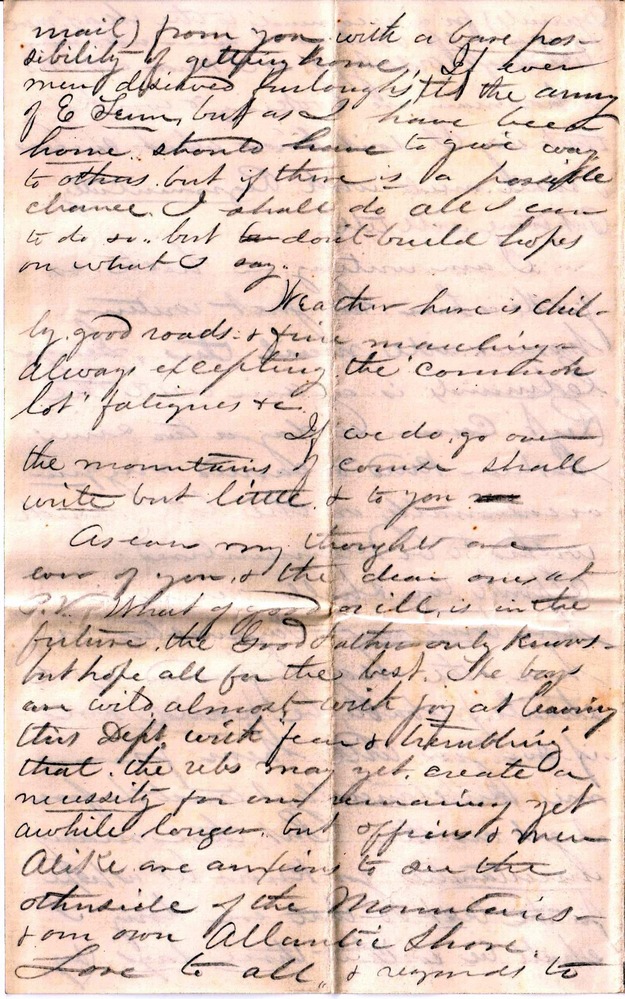 mail) from you with a bare pos-
sibility of getting home. If ever
men deserved furloughs, its the army
of E Tenn, but as I have been
home should have to give way
to others. but if there is a possible
chance. I shall do all I can
to do so.. but don't build hopes
on what I say..
Weather here is chil-
ly. good roads. & fine marching-
always excepting the "common
lot" fatigues &c.
If we do, go over
the mountains of course shall
write but little. & to you
my thoughts are
ever of you, & the dear ones at
P.V. What of good or ill, is in the
future, the Good Father only knows-
but hope all for the best. The boys
are wild almost with joy at leaving
this Dept with fear & trembling
that. the rebs may yet. create a
necessity for our remaining yet
awhile longer. but officers & men
Alike are anxious to see the
otherside of the Mountains-
& our own Atlantic Shore.
Love to all, & regards to